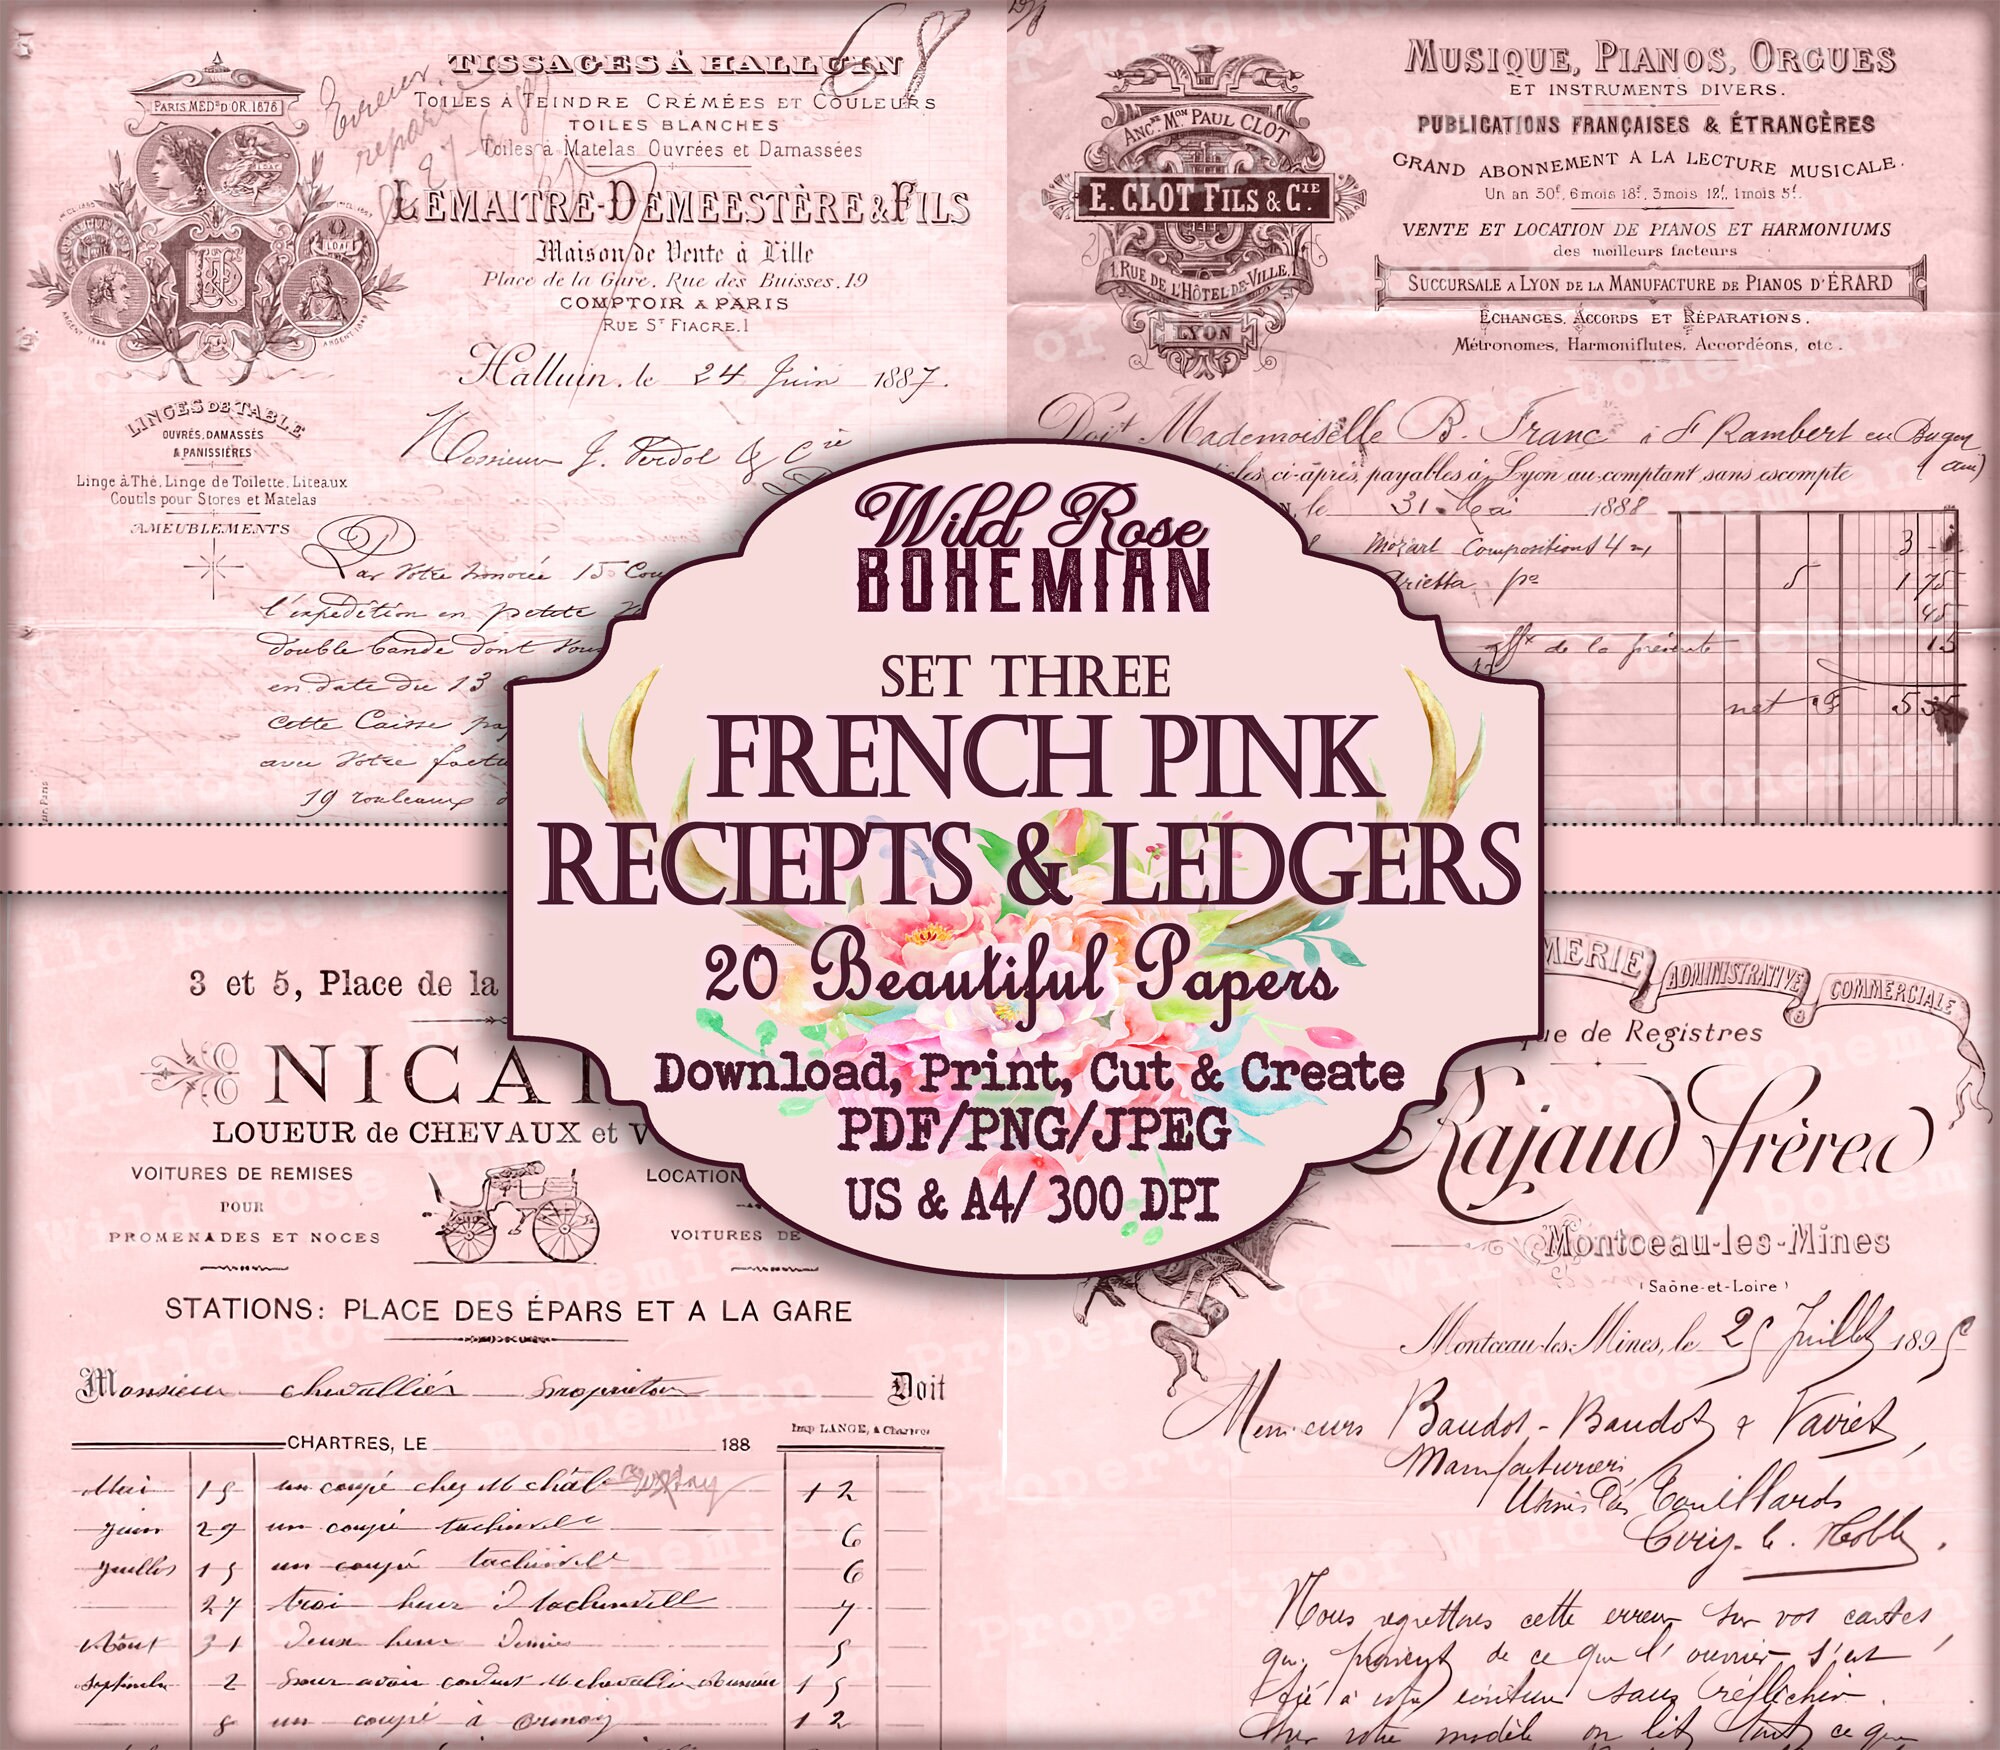 TISSAGES À HALLUIN
68
PARIS MED. D'OR. 1878
TOILES À TEINDRE CRÉMÉES ET COULEURS
TOILES BLANCHES
Toiles à Matelas Ouvrées et Damassées
LEMAITRE-DEMEESTÈRE & FILS
Maison de Vente à Lille
Place de la Gare, Rue des Buisses, 19
COMPTOIR À PARIS
RUE ST FIACRE, 1
Halluin, le 24 Juin 1887.
LINGES DE TABLE
OUVRÉS, DAMASSÉS
& PANISSIÈRES
Linge à Thé, Linge de Toilette, Liteaux
Coutils pour Stores et Matelas
AMEUBLEMENTS
Messieurs J. Verdol & Cie
Par Votre honorée 15 Cou
l'expédition en petite
double bande dont vous
en date du 13
cette Caisse
avec Votre factu
19 rouleaux
MUSIQUE, PIANOS, ORGUES
ET INSTRUMENTS DIVERS.
PUBLICATIONS FRANÇAISES & ÉTRANGÈRES
GRAND ABONNEMENT A LA LECTURE MUSICALE.
Un an 30f, 6 mois 18f, 3 mois 12f, 1 mois 5f.
VENTE ET LOCATION DE PIANOS ET HARMONIUMS
des meilleurs facteurs
SUCCURSALE A LYON DE LA MANUFACTURE DE PIANOS D'ÉRARD
ÉCHANGES, ACCORDS ET RÉPARATIONS.
Métronomes, Harmoniflutes, Accordéons, etc.
ANCNE MON PAUL CLOT
E. CLOT FILS & CIE.
1, RUE DE L'HÔTEL-DE-VILLE, 1
LYON
Doit Mademoiselle B. Franc à St Rambert en Bugey
(ain)
ci-après, payables à Lyon au comptant sans escompte
le 31 Mai 1888
Mozart Compositions 4 m 3
Arietta po 5 1 75
45
de la présente 15
net F 5 35
Wild Rose
BOHEMIAN
SET THREE
FRENCH PINK
RECIEPTS & LEDGERS
20 Beautiful Papers
Download, Print, Cut & Create
PDF/PNG/JPEG
US & A4/ 300 DPI
3 et 5, Place de la
NICA
LOUEUR de CHEVAUX et V
VOITURES DE REMISES
POUR
PROMENADES ET NOCES
LOCATION
VOITURES DE
STATIONS: PLACE DES ÉPARS ET A LA GARE
Monsieur chevallier Doit
Imp LANGE, à Chartres
CHARTRES, LE 188
Mai 15 un coupé chez M 12
juin 29 un coupé 6
juillet 15 un coupé 6
27 trois heures
Août 31 Deux heures 5
Septembre 2 pour avoir conduit M chevallier 15
8 un coupé à 12
MERIE ADMINISTRATIVE & COMMERCIALE
que de Registres
Rajaud frères
Montceau-les-Mines
(Saône-et-Loire)
Montceau-les-Mines, le 25 Juillet 1895
Messieurs Baudot-Baudot &
Manufacturiers
Usine des
Nous regrettons cette erreur sur vos cartes
qui provient de ce que l'ouvrier s'est
fié à votre écriture sans réfléchir.
Sur votre modèle on lit tout ce que